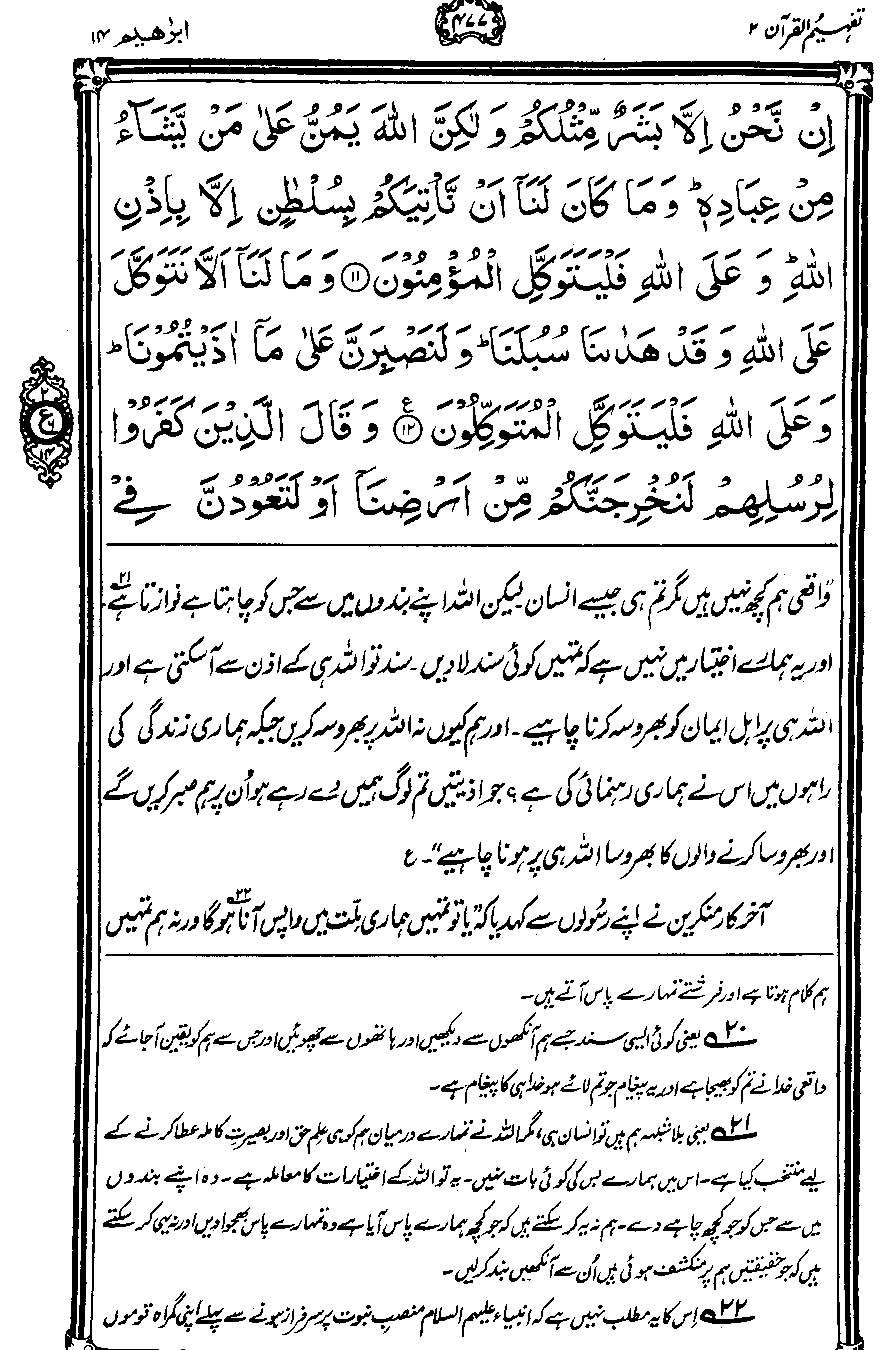 تفہیم القرآن ۲
۴۷۷
ابرٰھیم ۱۴
اِنْ نَّحْنُ اِلَّا بَشَرٌ مِّثْلُكُمْ وَ لٰكِنَّ اللّٰهَ يَمُنُّ عَلٰى مَنْ يَّشَآءُ
مِنْ عِبَادِهٖ ؕ وَ مَا كَانَ لَنَاۤ اَنْ نَّاْتِيَكُمْ بِسُلْطٰنٍ اِلَّا بِاِذْنِ
اللّٰهِ ؕ وَ عَلَى اللّٰهِ فَلْيَتَوَكَّلِ الْمُؤْمِنُوْنَ ۝۱۱ وَ مَا لَنَاۤ اَلَّا نَتَوَكَّلَ
عَلَى اللّٰهِ وَ قَدْ هَدٰىنَا سُبُلَنَا ؕ وَ لَنَصْبِرَنَّ عَلٰى مَاۤ اٰذَيْتُمُوْنَا ؕ
وَ عَلَى اللّٰهِ فَلْيَتَوَكَّلِ الْمُتَوَكِّلُوْنَ ۝۱۲ ع وَ قَالَ الَّذِيْنَ كَفَرُوْا
لِرُسُلِهِمْ لَنُخْرِجَنَّكُمْ مِّنْ اَرْضِنَاۤ اَوْ لَتَعُوْدُنَّ فِيْ
۲
ع
۹
۱۴
”واقعی ہم کچھ نہیں ہیں مگر تم ہی جیسے انسان لیکن اللہ اپنے بندوں میں سے جس کو چاہتا ہے نوازتا ہے۲۱۔
اور یہ ہمارے اختیار میں نہیں ہے کہ تمہیں کوئی سند لا دیں۔ سند تو اللہ ہی کے اذن سے آ سکتی ہے اور
اللہ ہی پر اہل ایمان کو بھروسہ کرنا چاہیے۔ اور ہم کیوں نہ اللہ پر بھروسہ کریں جبکہ ہماری زندگی کی
راہوں میں اس نے ہماری رہنمائی کی ہے؟ جو اذیتیں تم لوگ ہمیں دے رہے ہو اُن پر ہم صبر کریں گے
اور بھروسا کرنے والوں کا بھروسا اللہ ہی پر ہونا چاہیے“۔ ع
آخر کار منکرین نے اپنے رسُولوں سے کہہ دیا کہ ”یا تو تمہیں ہماری ملّت میں واپس آنا ہوگا۲۲ ورنہ ہم تمہیں
ہم کلام ہوتا ہے اور فرشتے تمہارے پاس آتے ہیں۔
۲۰ یعنی کوئی ایسی سند جسے ہم آنکھوں سے دیکھیں اور ہاتھوں سے چھوئیں اور جس سے ہم کو یقین آجائے کہ
واقعی خدا نے تم کو بھیجا ہے اور یہ پیغام جو تم لائے ہو خدا ہی کا پیغام ہے۔
۲۱ یعنی بلاشبہہ ہم ہیں تو انسان ہی، مگر اللہ نے تمہارے درمیان ہم کو ہی علمِ حق اور بصیرتِ کاملہ عطا کرنے کے
لیے منتخب کیا ہے۔ اس میں ہمارے بس کی کوئی بات نہیں۔ یہ تو اللہ کے اختیارات کا معاملہ ہے۔ وہ اپنے بندوں
میں سے جس کو جو کچھ چاہے دے۔ ہم نہ یہ کر سکتے ہیں کہ جو کچھ ہمارے پاس آیا ہے وہ تمہارے پاس بھجوا دیں اور نہ یہی کر سکتے
ہیں کہ جو حقیقتیں ہم پر منکشف ہوئی ہیں اُن سے آنکھیں بند کر لیں۔
۲۲ اِس کا یہ مطلب نہیں ہے کہ انبیاء علیہم السلام منصبِ نبوت پر سرفراز ہونے سے پہلے اپنی گمراہ قوموں